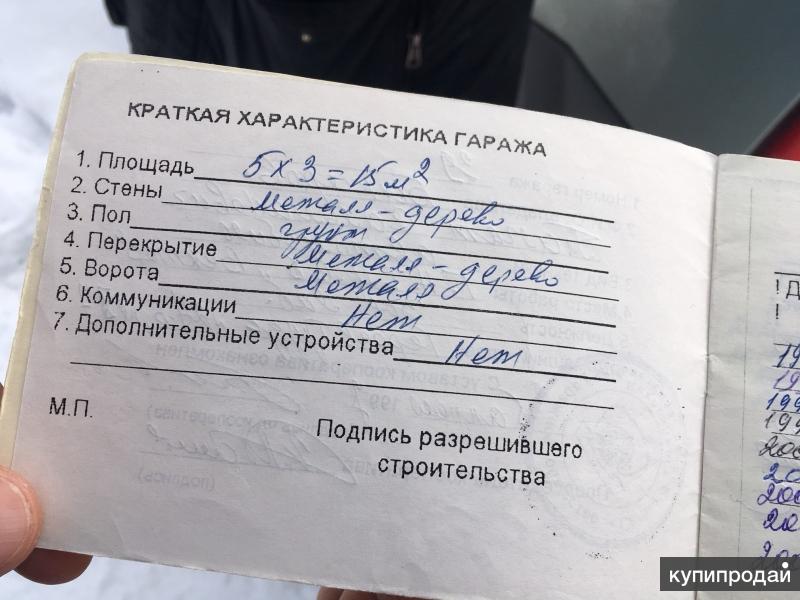 КРАТКАЯ ХАРАКТЕРИСТИКА ГАРАЖА
1. Площадь 5 х 3 = 15 м²
2. Стены металл - дерево
3. Пол грунт
4. Перекрытие металл - дерево
5. Ворота металл
6. Коммуникации Нет
7. Дополнительные устройства Нет
М.П.
Подпись разрешившего
строительства
! Д
!
купипродай